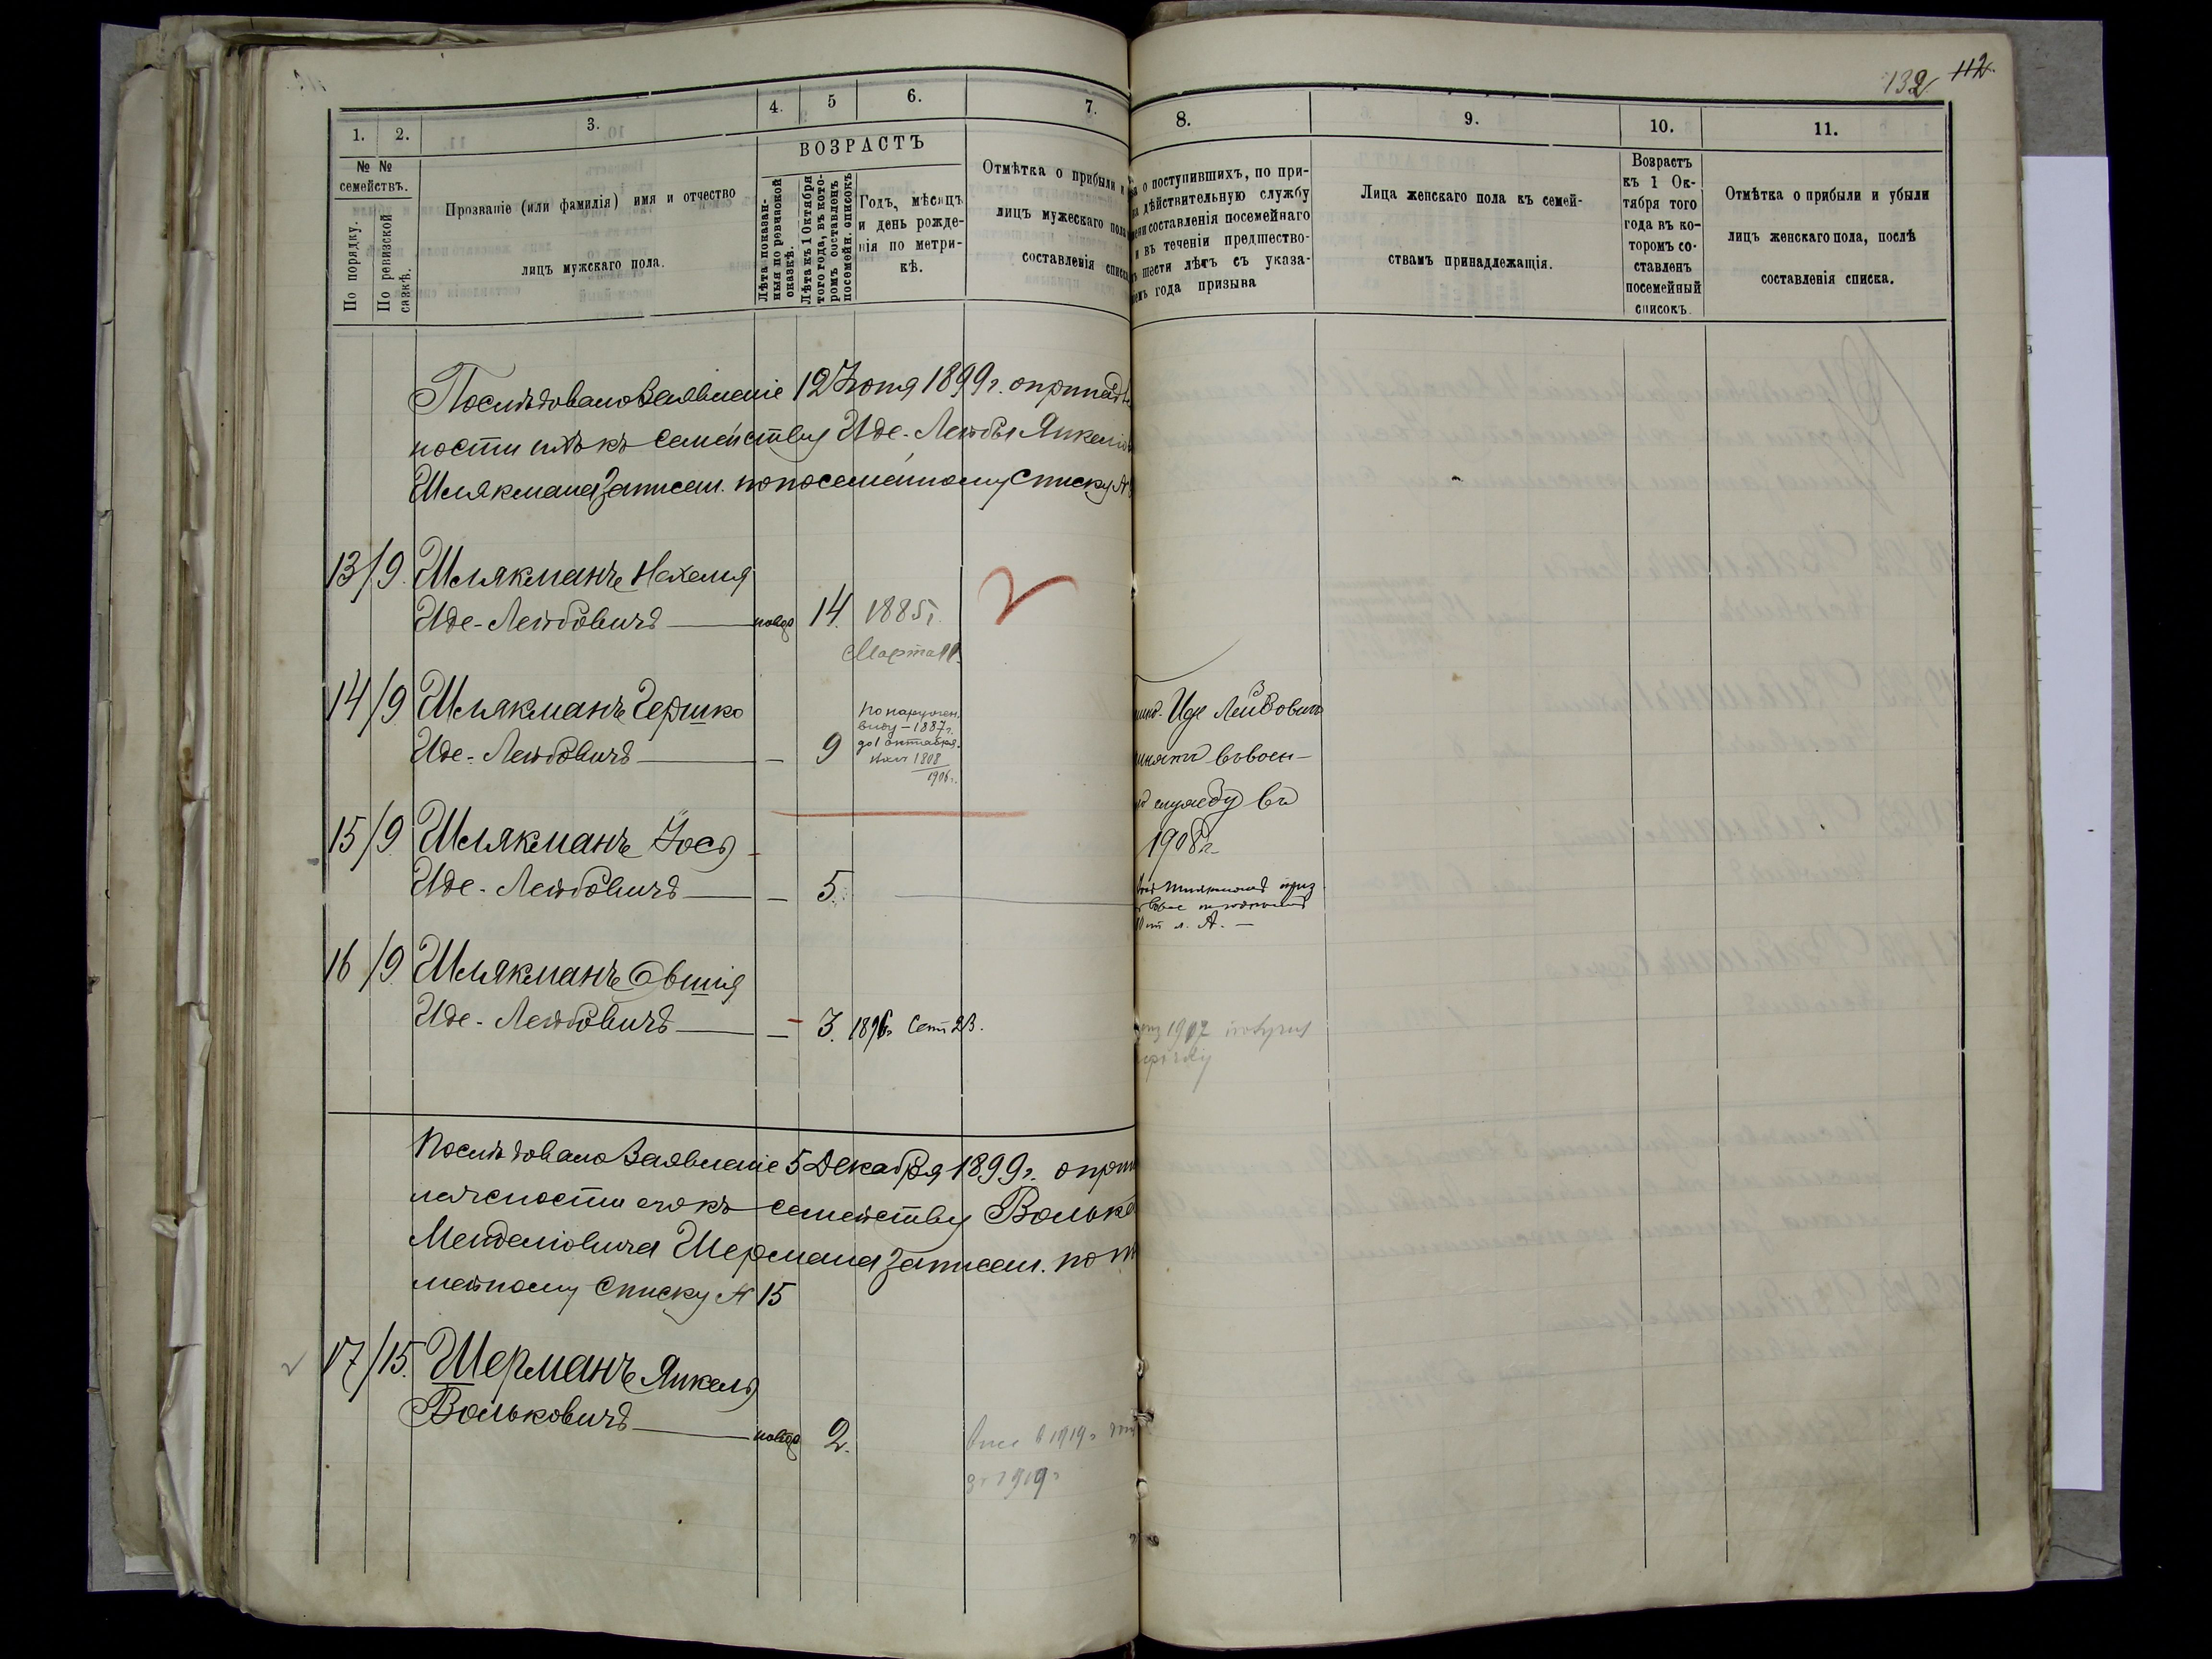 132 112
1. 2. 3. 4. 5 6. 7. 8. 9. 10. 11.
№ № семействъ.
По порядку.
По ревизской сказкѣ.
Прозваніе (или фамилія) имя и отчество
лицъ мужскаго пола.
ВОЗРАСТЪ
Лѣта показан-
ныя по ревизской
сказкѣ.
Лѣта къ 1 Октября
того года, въ кото-
ромъ составленъ
посемейн. списокъ
Годъ, мѣсяцъ
и день рожде-
нія по метри-
кѣ.
Отмѣтка о прибыли и
лицъ мужескаго пола
составленія списка
о поступившихъ, по при-
дѣйствительную службу
составленія посемейнаго
и въ теченіи предшество-
шести лѣтъ съ указа-
года призыва
Лица женскаго пола къ семей-
ствамъ принадлежащія.
Возрастъ
къ 1 Ок-
тября того
года въ ко-
торомъ со-
ставленъ
посемейный
списокъ.
Отмѣтка о прибыли и убыли
лицъ женскаго пола, послѣ
составленія списка.
Послѣдовало Заявленіе 12 Іюня 1899 г. о принадл
ности ихъ къ семейству Иде-Лейбы Янкелев
Шлякмана записан. по посемейному списку №
13/9. Шлякманъ Нахемя
Иде-Лейбовичъ — 14. 1885 г.
Марта 11.
14/9 Шлякманъ Гершко
Иде-Лейбовичъ — 9
по наружн.
виду – 1887 г.
до 1 октября
1908
1906 г.
Иде Лейбович
принятъ въ воен-
службу въ
1908 г.
15/9 Шлякманъ Іось
Иде-Лейбовичъ — 5.
16/9 Шлякманъ Овшія
Иде-Лейбовичъ — 3. 1896 г. Сент 23.
1917
Послѣдовало Заявленіе 5 Декабря 1899 г. о прин
лежности его къ семейству Волька
Менделіовича Шермана записан. по
мейному списку № 15
17/15. Шерманъ Янкель
Вольковичъ — 2.
в 1919 г.
1919 г.